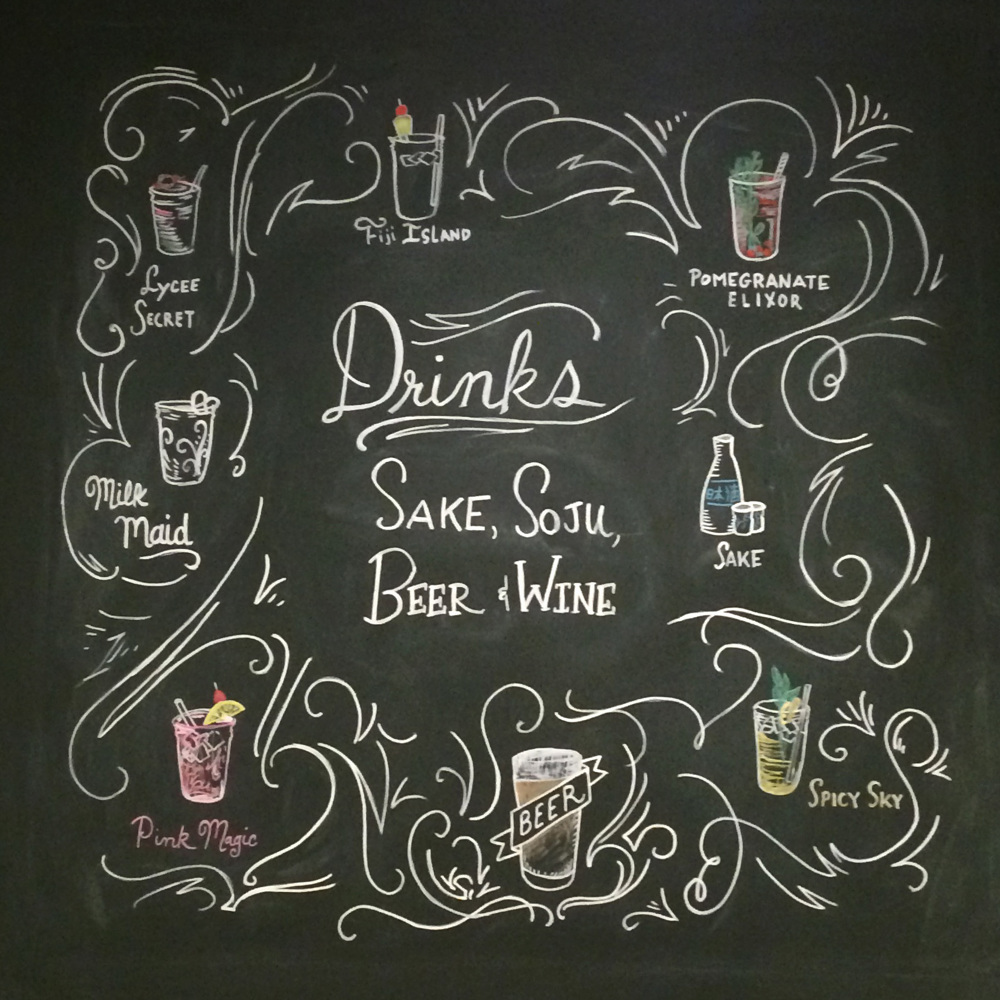 Fiji Island
Lycee
Secret
Pomegranate
Elixor
Drinks
Milk
Maid
Sake, Soju,
Beer & Wine
日本酒
Sake
Pink Magic
Beer
Spicy Sky